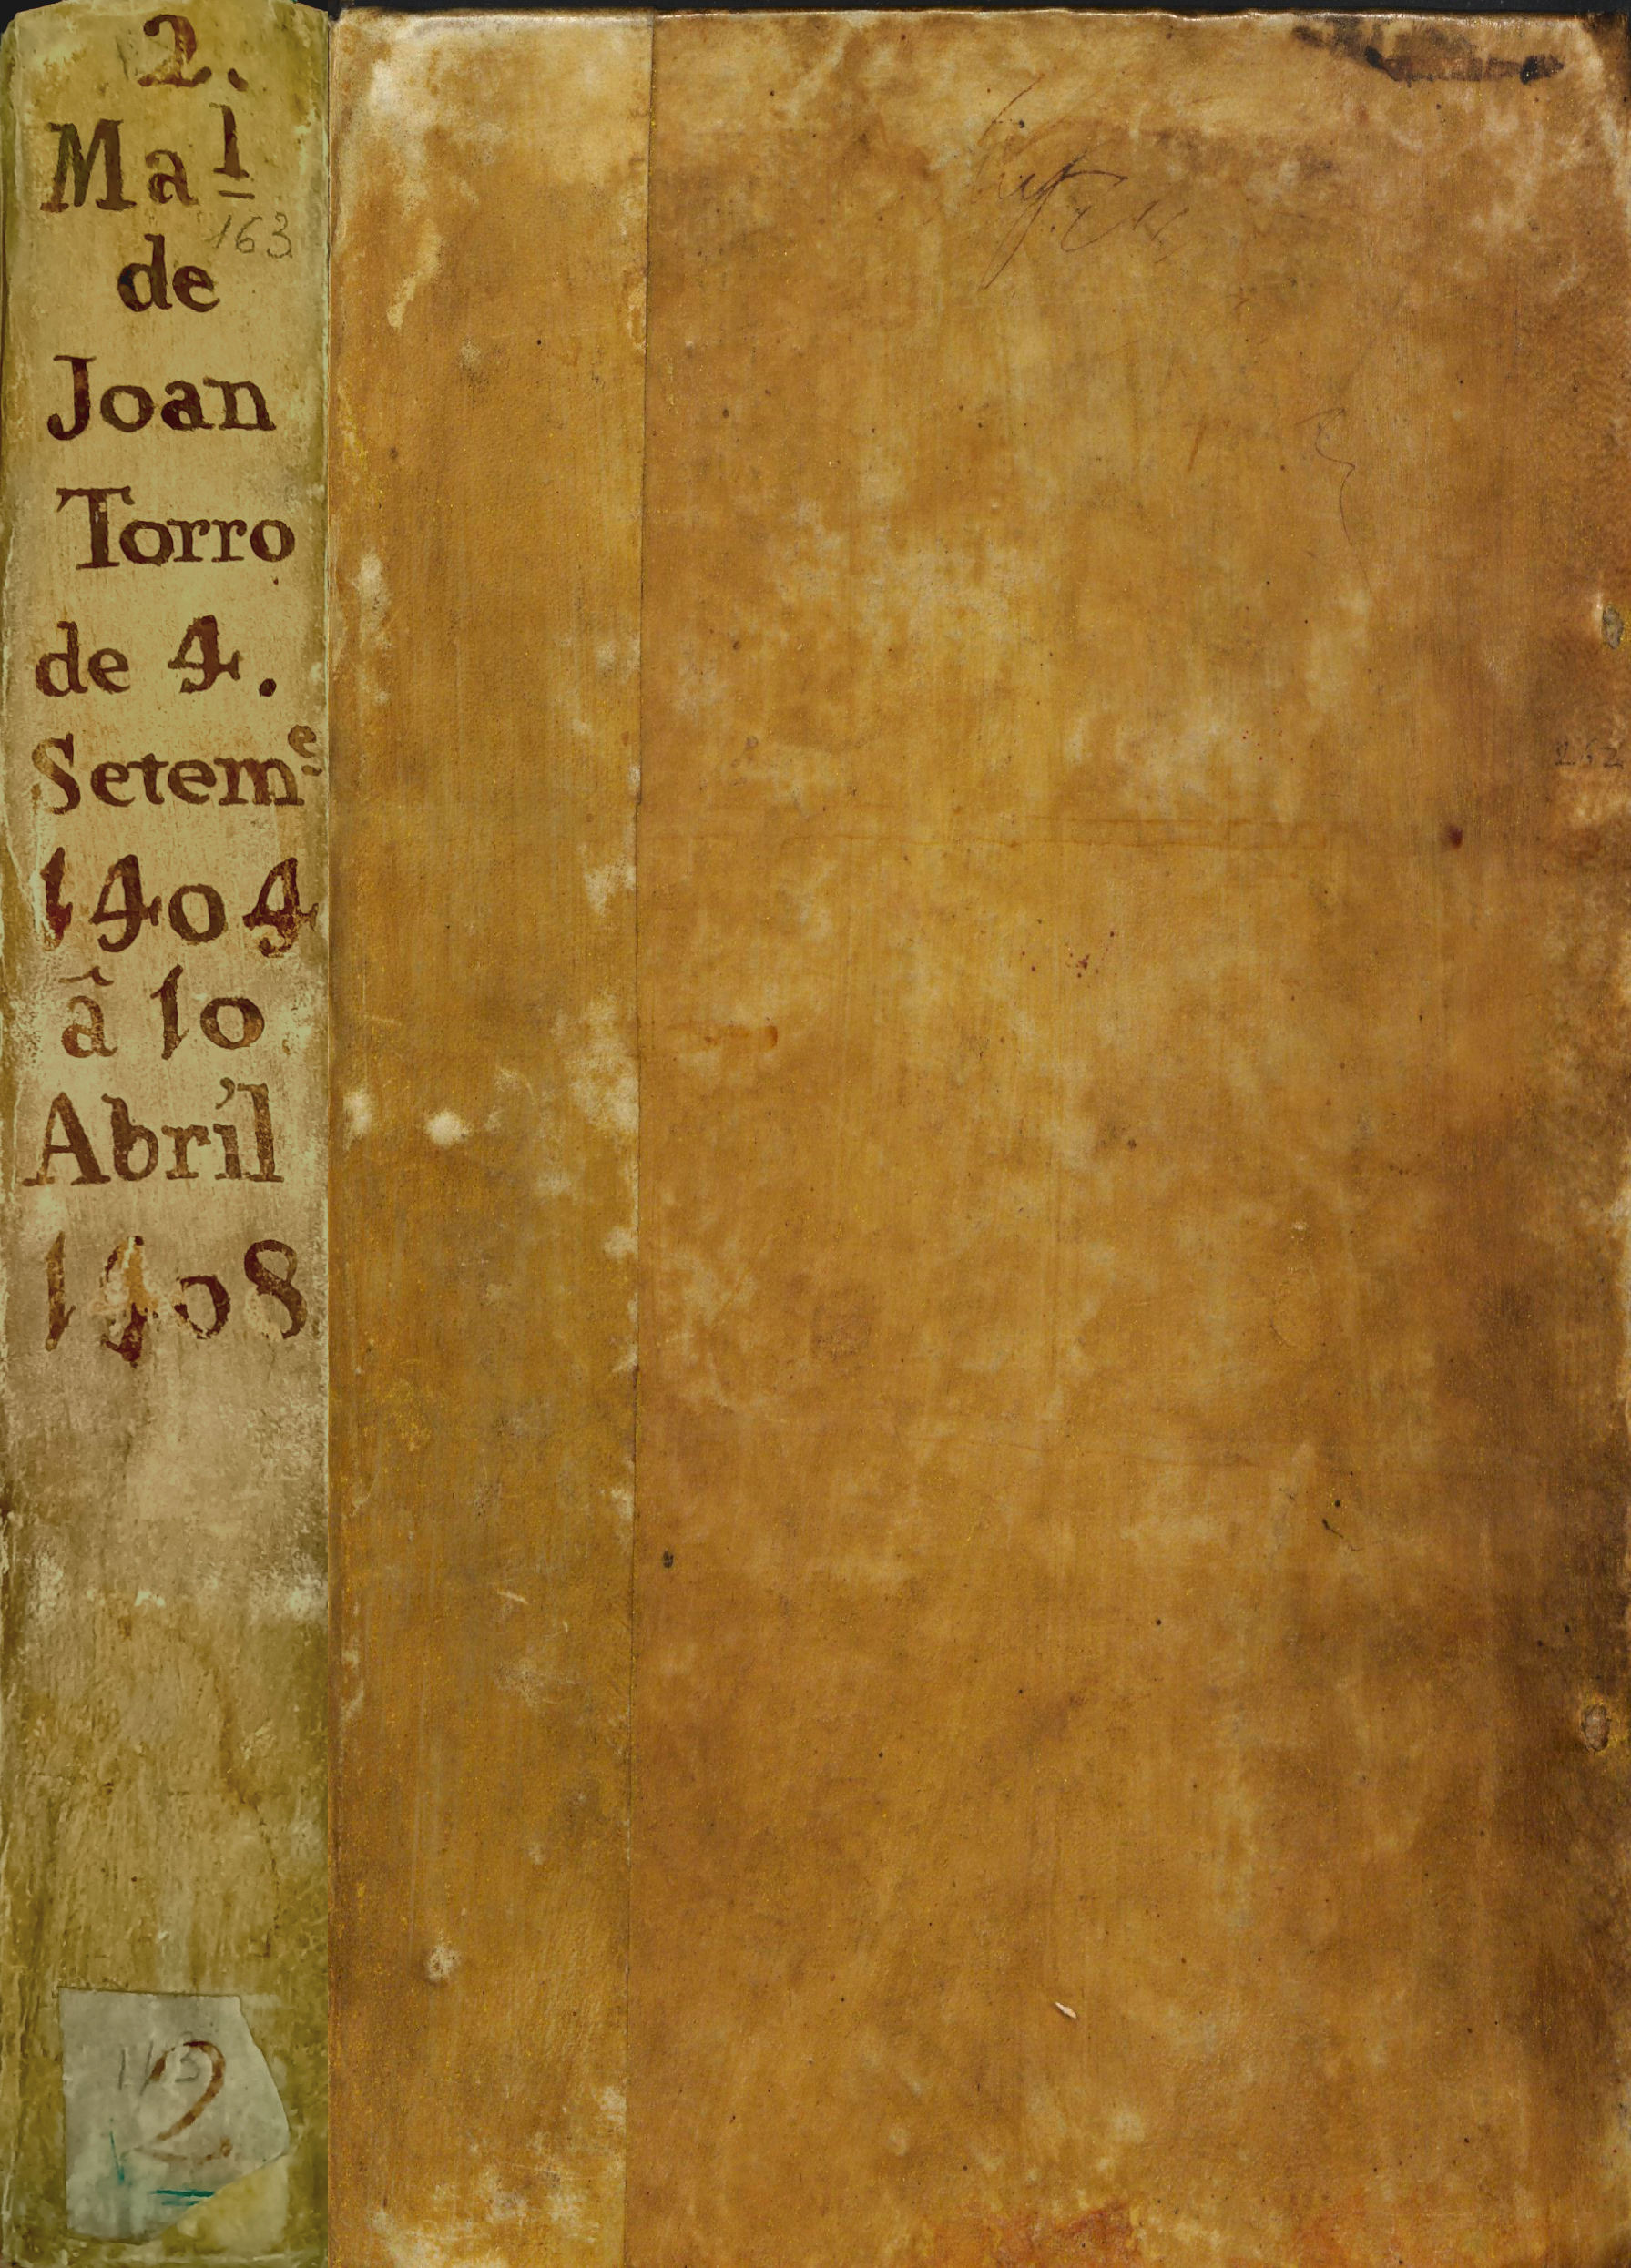 2.
Maꞁ̲
163
de
Joan
Torro
de 4.
Setemᵉ
1404
â 10
Abril
1408
113
2
262